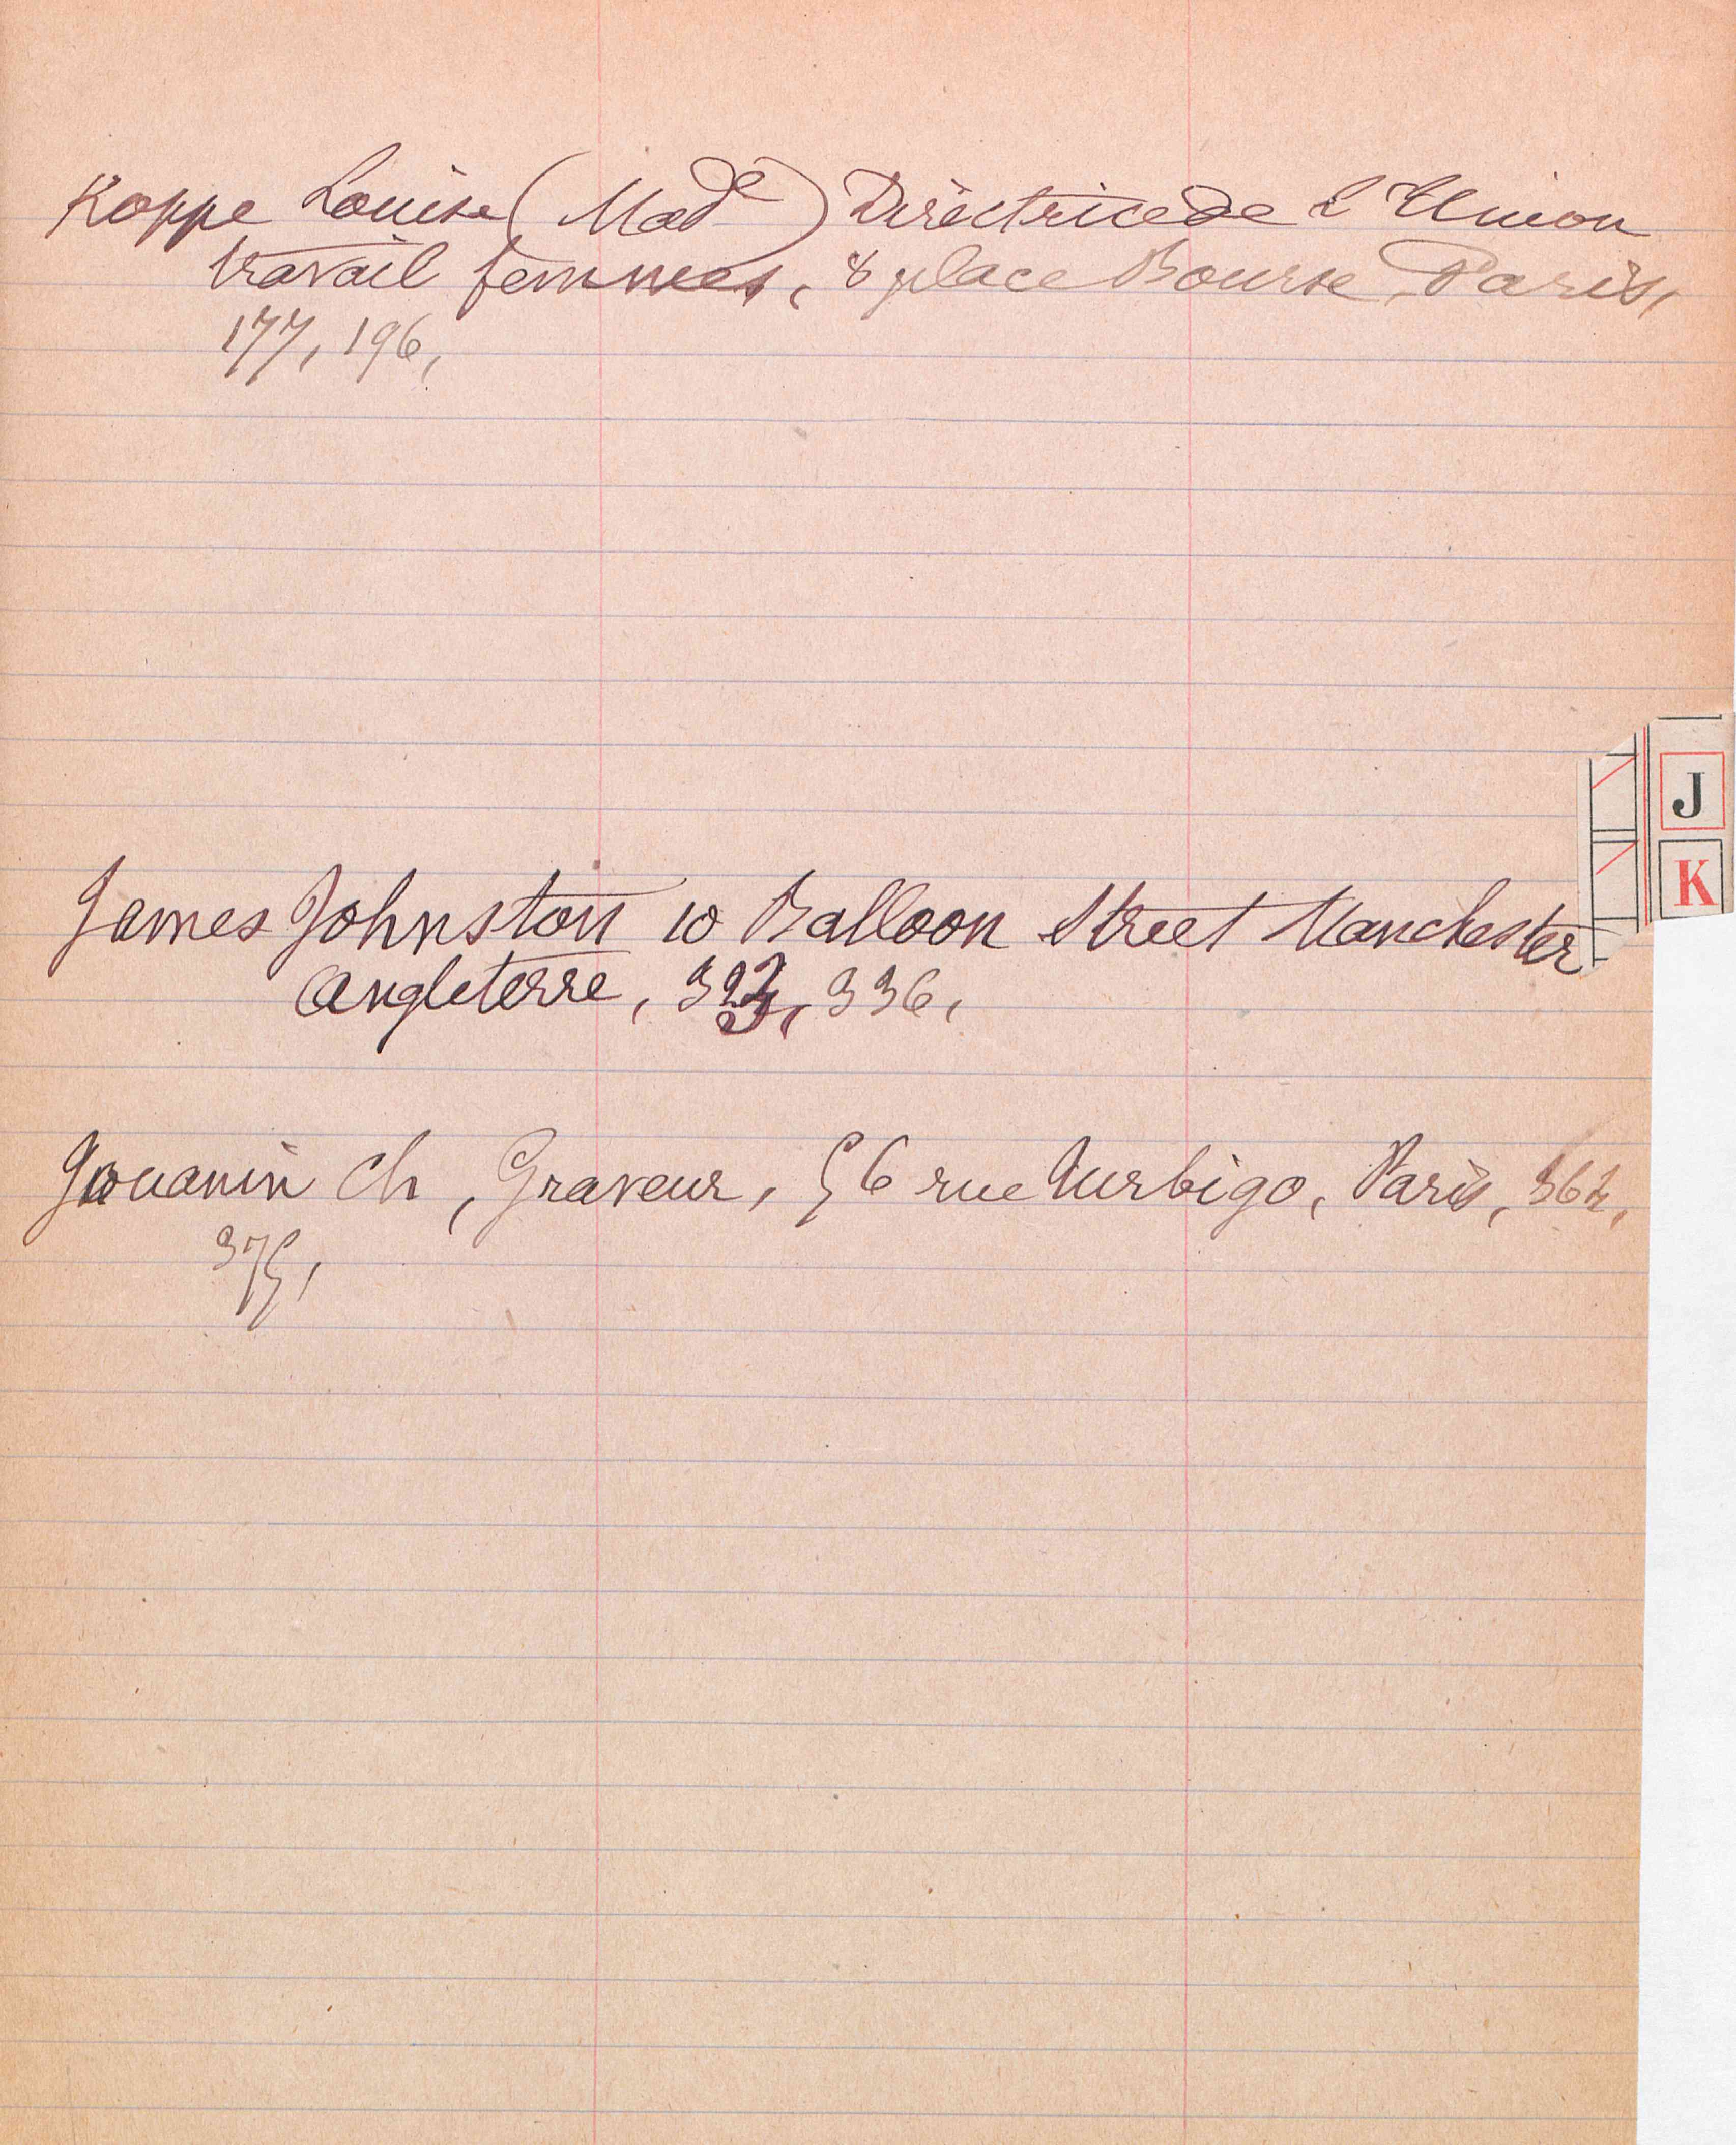 Koppe Louise (Made) Directrice de l'Union
travail femmes, 8 place Bourse, Paris,
177, 196,
J
K
James Johnston 10 Balloon Street Manchester
Angleterre, 323, 336,
Jouanin Ch, Graveur, 56 rue Turbigo, Paris, 362,
375,